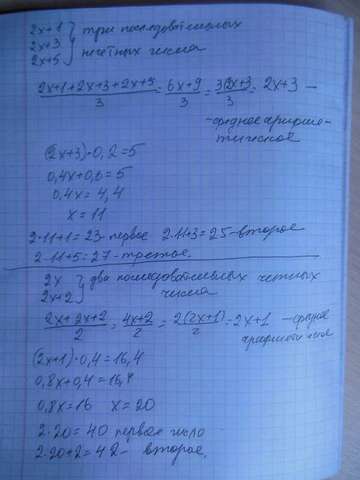 2x+1 } три последовательных
2x+3 нечетных числа
2x+5
2x+1+2x+3+2x+5/3 = 6x+9/3 = 3(2x+3)/3 = 2x+3 —
-среднее арифме-
тическое
(2x+3)·0,2=5
0,4x+0,6=5
0,4x=4,4
x=11
2·11+1=23-первое 2·11+3=25-второе
2·11+5=27-третье.
2x } два последовательных четных
2x+2 числа
2x+2x+2/2 = 4x+2/2 = 2(2x+1)/2 = 2x+1 — среднее
арифметическое
(2x+1)·0,4=16,4
0,8x+0,4=16,4
0,8x=16 x=20
2·20=40 первое число
2·20+2=42- второе.